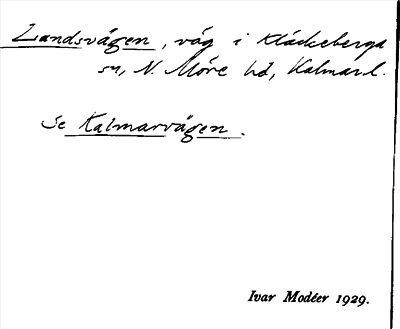 Landsvägen, väg i Kläckeberga
sn, N. Möre hd, Kalmar l.
Se Kalmarvägen.
Ivar Modéer 1929.